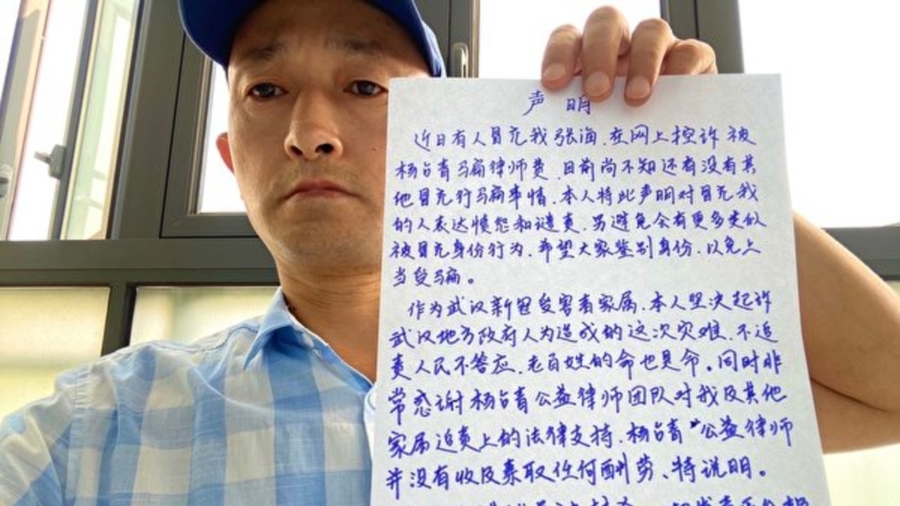 声明
近日有人冒充我张海.在网上控诉被
杨占青骗律师费.目前尚不知还有没有其
他冒充行骗事情.本人特此声明对冒充我
的人表达愤怒和谴责.另避免会有更多类似
被冒充身份行为.希望大家鉴别身份.以免上
当受骗。
作为武汉新冠受害者家属.本人坚决起诉
武汉地方政府人为造成的这次灾难.不追
责人民不答应.老百姓的命也是命。同时非
常感谢杨占青公益律师团队对我及其他
家属追责上的法律支持.杨占青"公益律师
并没有收及索取任何酬劳、特说明。